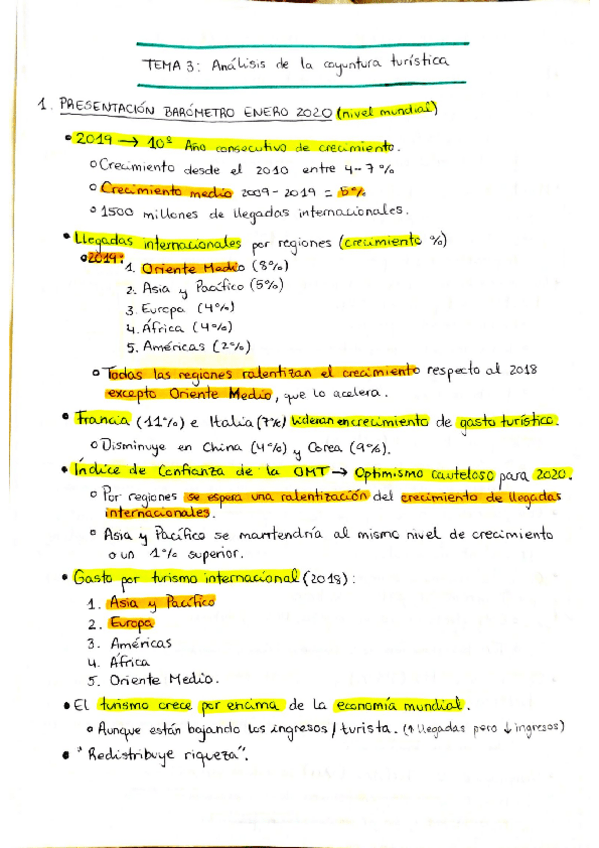 TEMA 3: Análisis de la coyuntura turística
1. PRESENTACIÓN BARÓMETRO ENERO 2020 (nivel mundial)
• 2019 → 10º Año consecutivo de crecimiento.
o Crecimiento desde el 2010 entre 4-7%
o Crecimiento medio 2009-2019 = 5%
o 1500 millones de llegadas internacionales.
• Llegadas internacionales por regiones (crecimiento %)
o 2019:
1. Oriente Medio (8%)
2. Asia y Pacífico (5%)
3. Europa (4%)
4. África (4%)
5. Américas (2%)
o Todas las regiones ralentizan el crecimiento respecto al 2018
excepto Oriente Medio, que lo acelera.
• Francia (11%) e Italia (7%) lideran en crecimiento de gasto turístico.
o Disminuye en China (4%) y Corea (9%).
• Índice de Confianza de la OMT → Optimismo cauteloso para 2020.
o Por regiones se espera una ralentización del crecimiento de llegadas
internacionales.
o Asia y Pacífico se mantendría al mismo nivel de crecimiento
o un 1% superior.
• Gasto por turismo internacional (2018):
1. Asia y Pacífico
2. Europa
3. Américas
4. África
5. Oriente Medio.
• El turismo crece por encima de la economía mundial.
o Aunque están bajando los ingresos/turista. (↑ llegadas pero ↓ ingresos)
• "Redistribuye riqueza".